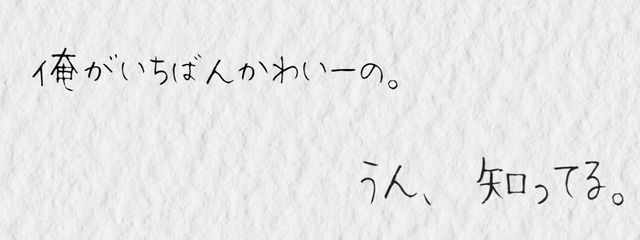 俺がいちばんかわいーの。
うん、知ってる。